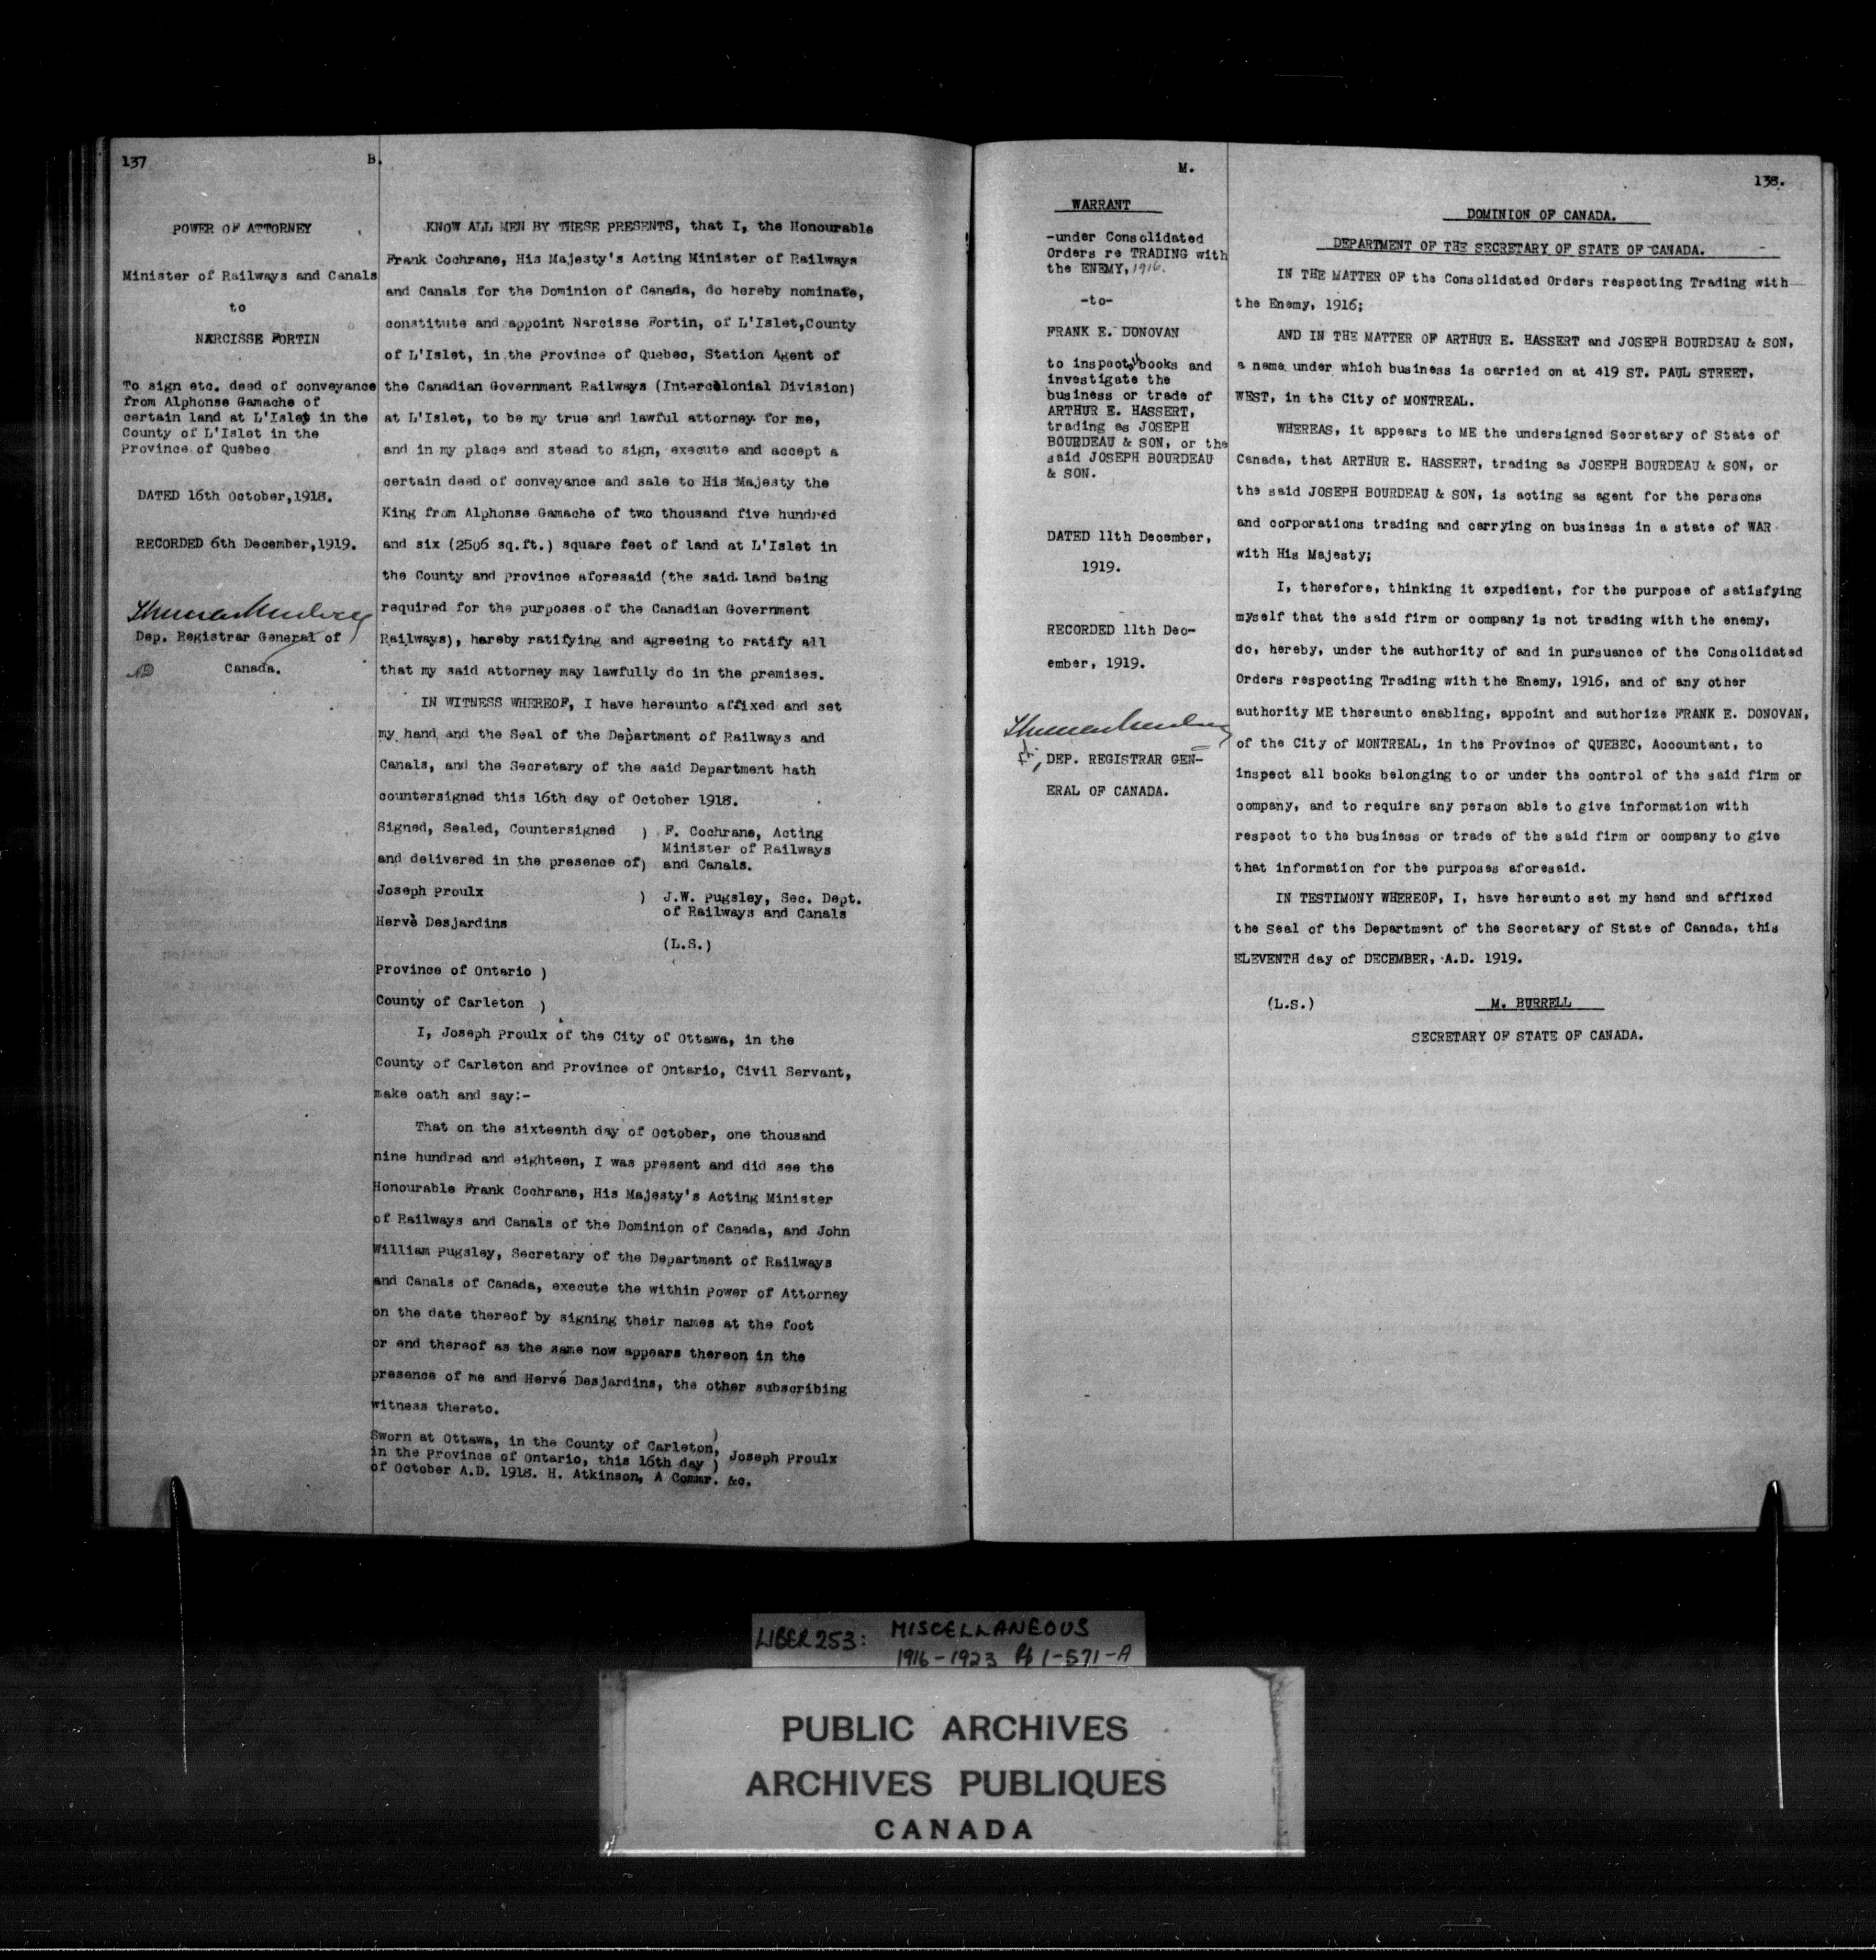 137
B.
POWER OF ATTORNEY
Minister of Railways and Canals
to
NARCISSE FORTIN
To sign etc. deed of conveyance
from Alphonse Gamache of
certain land at L'Islet in the
County of L'Islet in the
Province of Quebec
DATED 16th October,1918.
RECORDED 6th December,1919.
Dep. Registrar General of
Canada.
KNOW ALL MEN BY THESE PRESENTS, that I, the Honourable
Frank Cochrane, His Majesty's Acting Minister of Railways
and Canals for the Dominion of Canada, do hereby nominate,
constitute and appoint Narcisse Fortin, of L'Islet,County
of L'Islet, in the Province of Quebec, Station Agent of
the Canadian Government Railways (Intercolonial Division)
at L'Islet, to be my true and lawful attorney for me,
and in my place and stead to sign, execute and accept a
certain deed of conveyance and sale to His Majesty the
King from Alphonse Gamache of two thousand five hundred
and six (2506 sq.ft.) square feet of land at L'Islet in
the County and Province aforesaid (the said land being
required for the purposes of the Canadian Government
Railways), hereby ratifying and agreeing to ratify all
that my said attorney may lawfully do in the premises.
IN WITNESS WHEREOF, I have hereunto affixed and set
my hand and the Seal of the Department of Railways and
Canals, and the Secretary of the said Department hath
countersigned this 16th day of October 1918.
Signed, Sealed, Countersigned ) F. Cochrane, Acting
Minister of Railways
and delivered in the presence of) and Canals.
Joseph Proulx ) J.W. Pugsley, Sec. Dept.
of Railways and Canals
Hervè Desjardins
(L.S.)
Province of Ontario )
County of Carleton )
I, Joseph Proulx of the City of Ottawa, in the
County of Carleton and Province of Ontario, Civil Servant,
make oath and say:-
That on the sixteenth day of October, one thousand
nine hundred and eighteen, I was present and did see the
Honourable Frank Cochrane, His Majesty's Acting Minister
of Railways and Canals of the Dominion of Canada, and John
William Pugsley, Secretary of the Department of Railways
and Canals of Canada, execute the within Power of Attorney
on the date thereof by signing their names at the foot
or end thereof as the same now appears thereon in the
presence of me and Hervé Desjardins, the other subscribing
witness thereto.
Sworn at Ottawa, in the County of Carleton, )
in the Province of Ontario, this 16th day ) Joseph Proulx
of October A.D. 1918. H. Atkinson, A Commr. &c.
M.
138.
WARRANT
-under Consolidated
Orders re TRADING with
the ENEMY, 1916.
-to-
FRANK E. DONOVAN
to inspect books and
investigate the
business or trade of
ARTHUR E. HASSERT,
trading as JOSEPH
BOURDEAU & SON, or the
said JOSEPH BOURDEAU
& SON.
DATED 11th December,
1919.
RECORDED 11th Dec-
ember, 1919.
DEP. REGISTRAR GEN-
ERAL OF CANADA.
DOMINION OF CANADA.
DEPARTMENT OF THE SECRETARY OF STATE OF CANADA.
IN THE MATTER OF the Consolidated Orders respecting Trading with
the Enemy, 1916;
AND IN THE MATTER OF ARTHUR E. HASSERT and JOSEPH BOURDEAU & SON,
a name under which business is carried on at 419 ST. PAUL STREET,
WEST, in the City of MONTREAL.
WHEREAS, it appears to ME the undersigned Secretary of State of
Canada, that ARTHUR E. HASSERT, trading as JOSEPH BOURDEAU & SON, or
the said JOSEPH BOURDEAU & SON, is acting as agent for the persons
and corporations trading and carrying on business in a state of WAR
with His Majesty;
I, therefore, thinking it expedient, for the purpose of satisfying
myself that the said firm or company is not trading with the enemy,
do, hereby, under the authority of and in pursuance of the Consolidated
Orders respecting Trading with the Enemy, 1916, and of any other
authority ME thereunto enabling, appoint and authorize FRANK E. DONOVAN,
of the City of MONTREAL, in the Province of QUEBEC, Accountant, to
inspect all books belonging to or under the control of the said firm or
company, and to require any person able to give information with
respect to the business or trade of the said firm or company to give
that information for the purposes aforesaid.
IN TESTIMONY WHEREOF, I, have hereunto set my hand and affixed
the Seal of the Department of the Secretary of State of Canada, this
ELEVENTH day of DECEMBER, A.D. 1919.
(L.S.) M. BURRELL
SECRETARY OF STATE OF CANADA.
LIBER 253: MISCELLANEOUS
1916-1923 1-571-A
PUBLIC ARCHIVES
ARCHIVES PUBLIQUES
CANADA